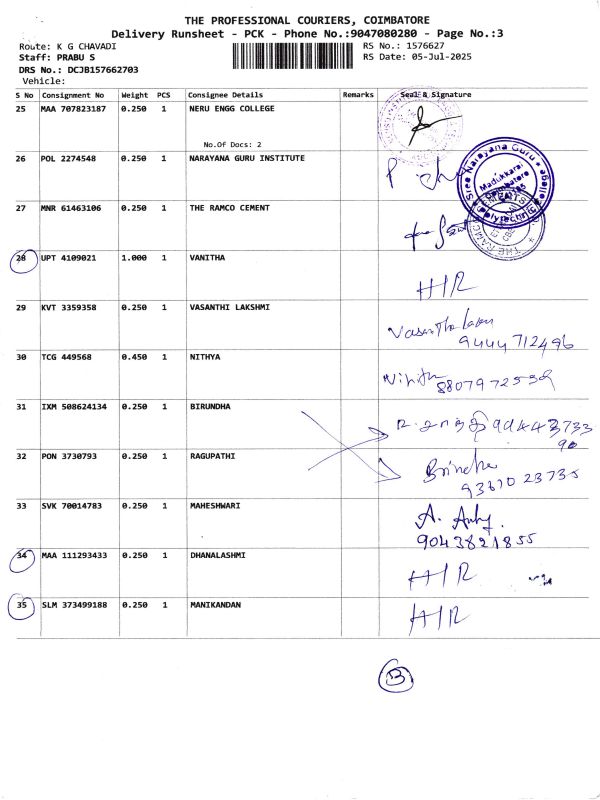 THE PROFESSIONAL COURIERS, COIMBATORE
Delivery Runsheet - PCK - Phone No.:9047080280 - Page No.:3
Route: K G CHAVADI RS No.: 1576627
Staff: PRABU S RS Date: 05-Jul-2025
DRS No.: DCJB157662703
Vehicle:
S No Consignment No Weight PCS Consignee Details Remarks Seal & Signature
25 MAA 707823187 0.250 1 NERU ENGG COLLEGE
No.Of Docs: 2
26 POL 2274548 0.250 1 NARAYANA GURU INSTITUTE
Sree Narayana Guru
Madukkarai
Coimbatore
Polytechnic College
27 MNR 61463106 0.250 1 THE RAMCO CEMENT
28 UPT 4109021 1.000 1 VANITHA H/R
29 KVT 3359358 0.250 1 VASANTHI LAKSHMI
9444712496
30 TCG 449568 0.450 1 NITHYA
8807972539
31 IXM 508624134 0.250 1 BIRUNDHA
32 PON 3730793 0.250 1 RAGUPATHI
33 SVK 70014783 0.250 1 MAHESHWARI
9043821855
34 MAA 111293433 0.250 1 DHANALASHMI H/R
35 SLM 373499188 0.250 1 MANIKANDAN H/R
B